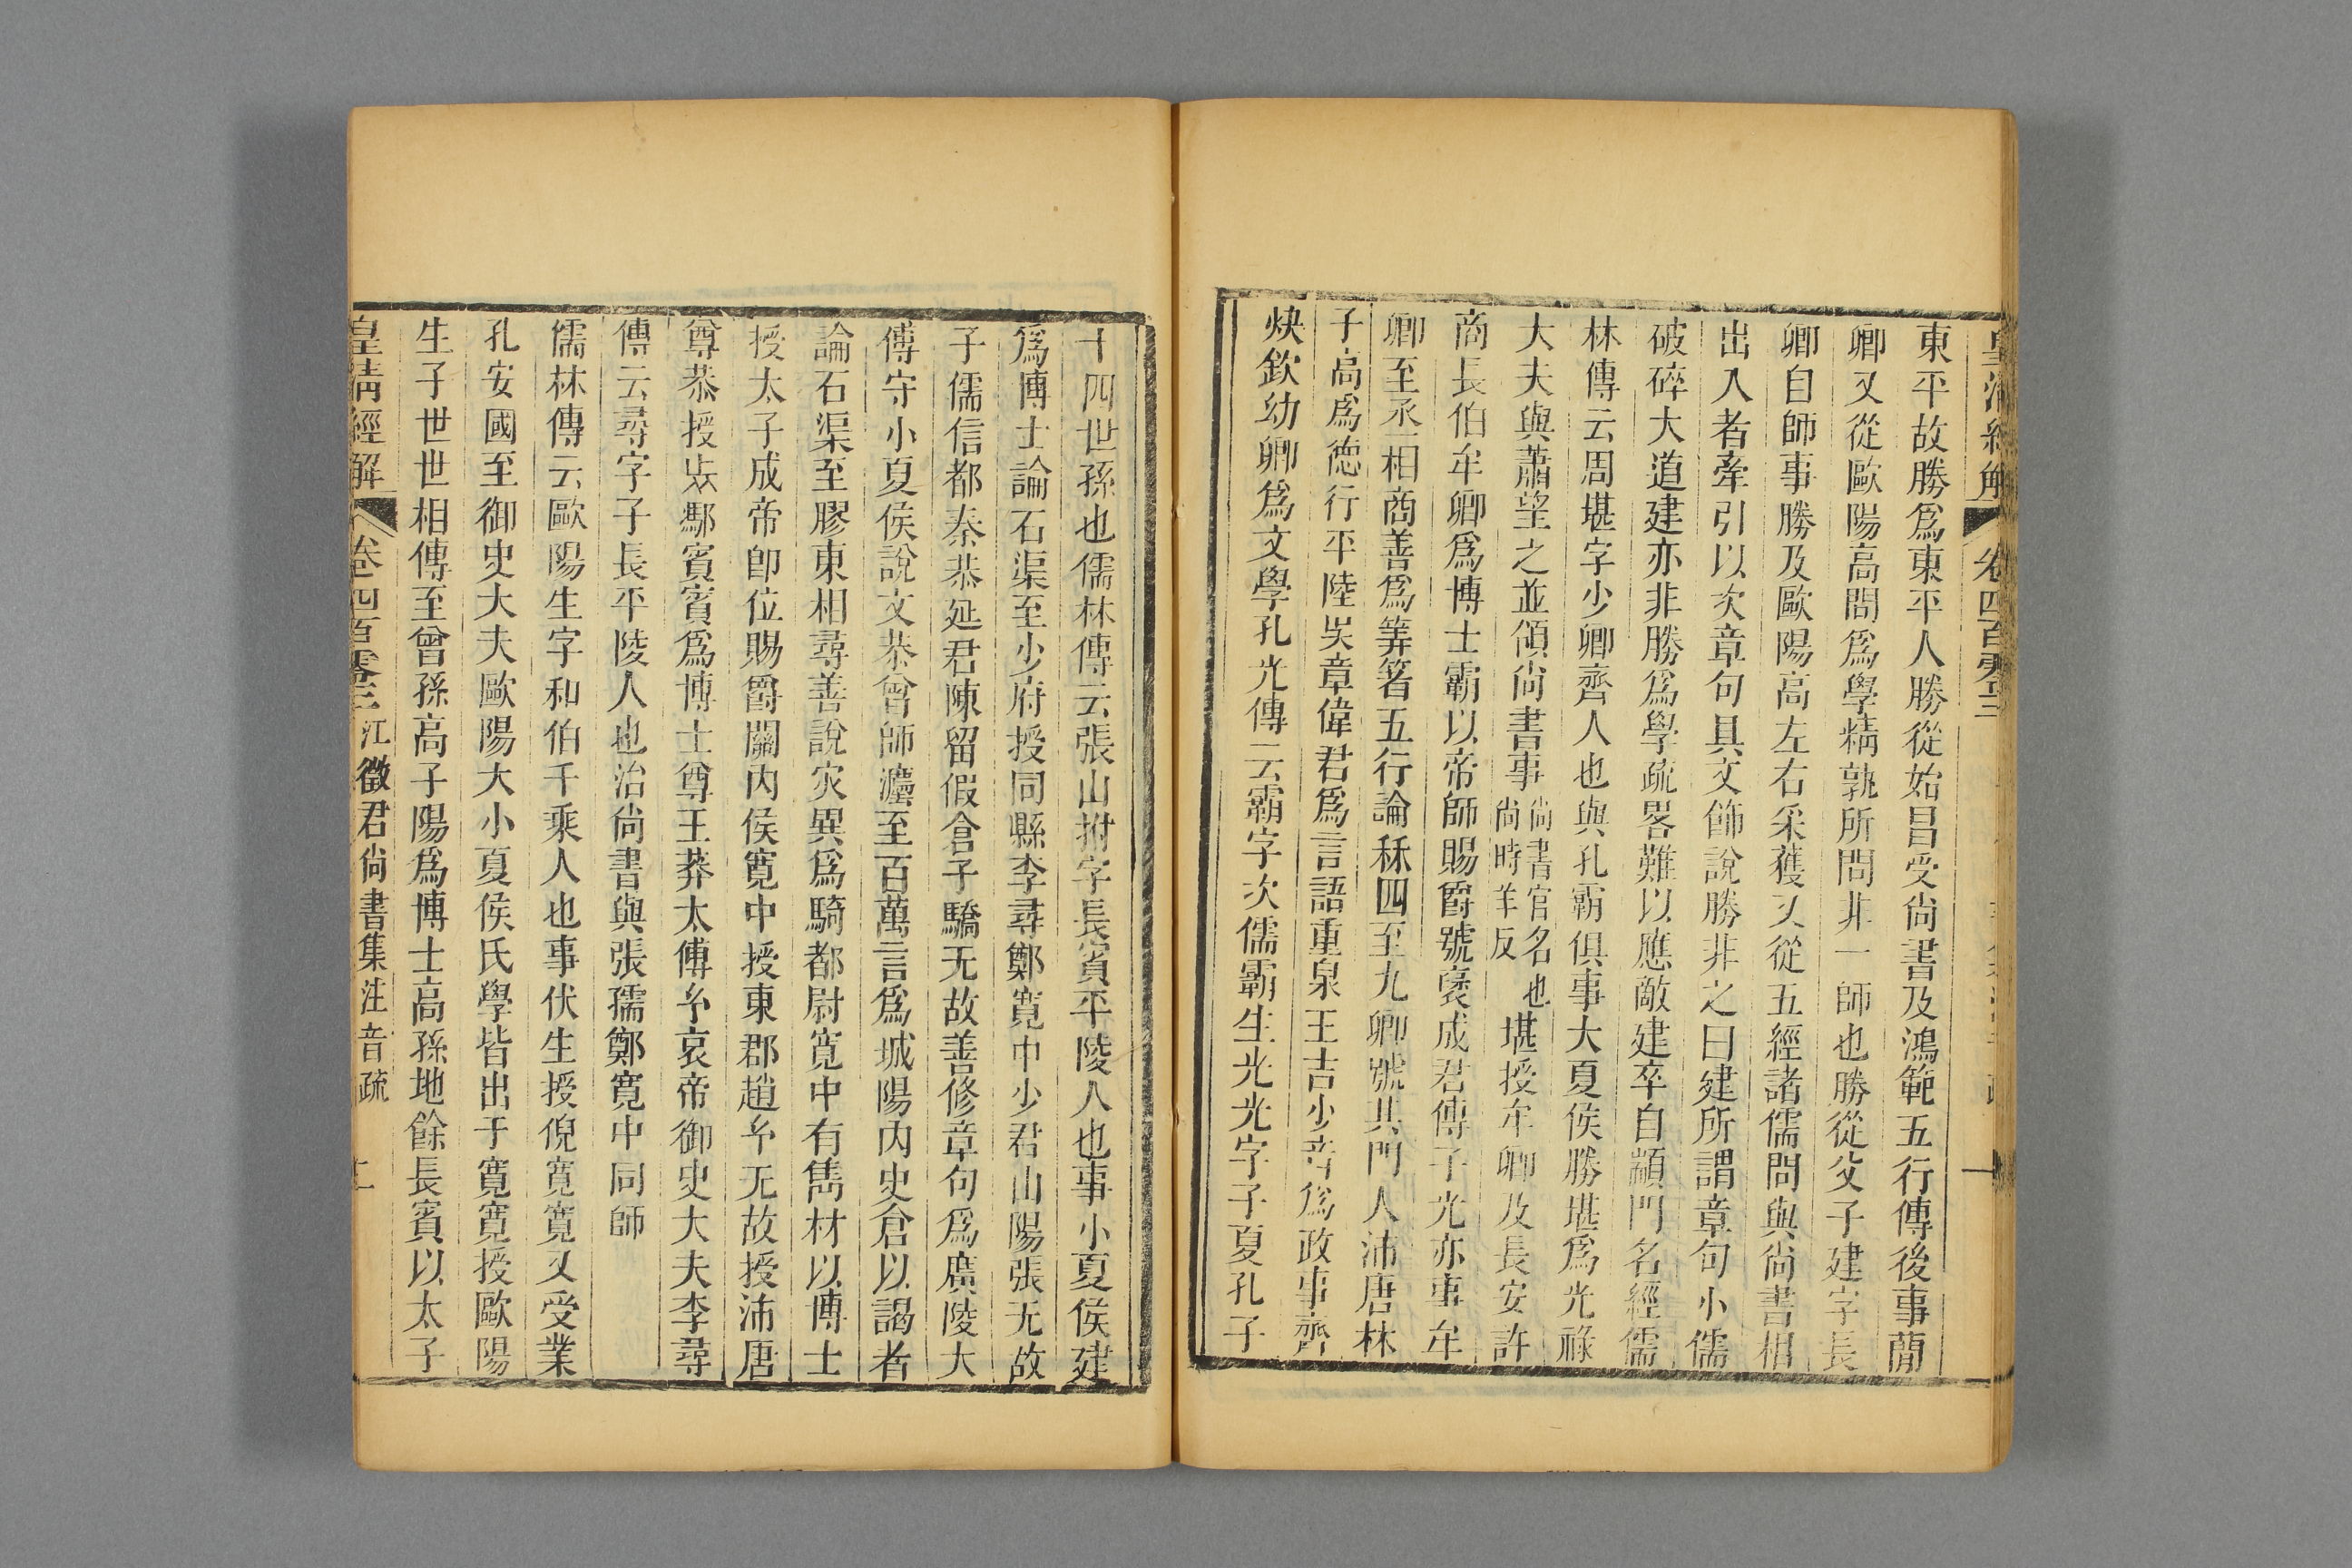 皇清經解 卷四百零三
東平故勝爲東平人勝從始昌受尙書及鴻範五行傳後事蕑
卿又從歐陽高問爲學精孰所問非一師也勝從父子建字長
卿自師事勝及歐陽高左右采獲又從五經諸儒問與尙書相
出入者牽引以次章句具文飾說勝非之曰建所謂章句小儒
破碎大道建亦非勝爲學疏畧難以應敵建卒自顓門名經儒
林傳云周堪字少卿齊人也與孔霸俱事大夏侯勝堪爲光祿
大夫與蕭望之並領尙書事尙書官名也尙時羊反堪授牟卿及長安許
商長伯牟卿爲博士霸以帝師賜爵號襃成君傳子光亦事牟
卿至丞相商善爲筭箸五行論秝四至九卿號其門人沛唐林
子高爲德行平陵吳章偉君爲言語重泉王吉少音爲政事齊
炔欽幼卿爲文學孔光傳云霸字次儒霸生光光字子夏孔子
十四世孫也儒林傳云張山拊字長賓平陵人也事小夏侯建
爲博士論石渠至少府授同縣李尋鄭寬中少君山陽張无故
子儒信都秦恭延君陳留假倉子驕无故善修章句爲廣陵大
傅守小夏侯說文恭曾師灋至百萬言爲城陽內史倉以謁者
論石渠至膠東相尋善說灾異爲騎都尉寬中有雋材以博士
授太子成帝卽位賜爵關內侯寬中授東郡趙㓜无故授沛唐
尊恭授魯馮賓賓爲博士尊王莽太傅㓜哀帝御史大夫李尋
傳云尋字子長平陵人也治尙書與張孺鄭寬中同師
儒林傳云歐陽生字和伯千乘人也事伏生授倪寬寬又受業
孔安國至御史大夫歐陽大小夏侯氏學皆出于寬寬授歐陽
生子世世相傳至曾孫高子陽爲博士高孫地餘長賓以太子
皇清經解 卷四百零三 江徵君尙書集注音疏